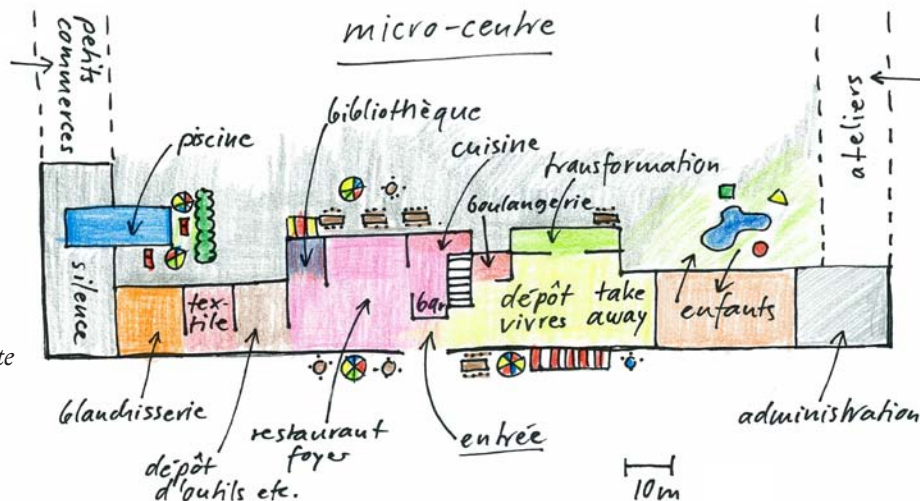 micro-centre
petits
commerces
ateliers
piscine
bibliothèque
cuisine
transformation
boulangerie
silence
tex-
tile
bar
dépôt
vivres
take
away
enfants
te
blanchisserie
dépôt
d'outils etc.
restaurant
foyer
entrée
administration
10m